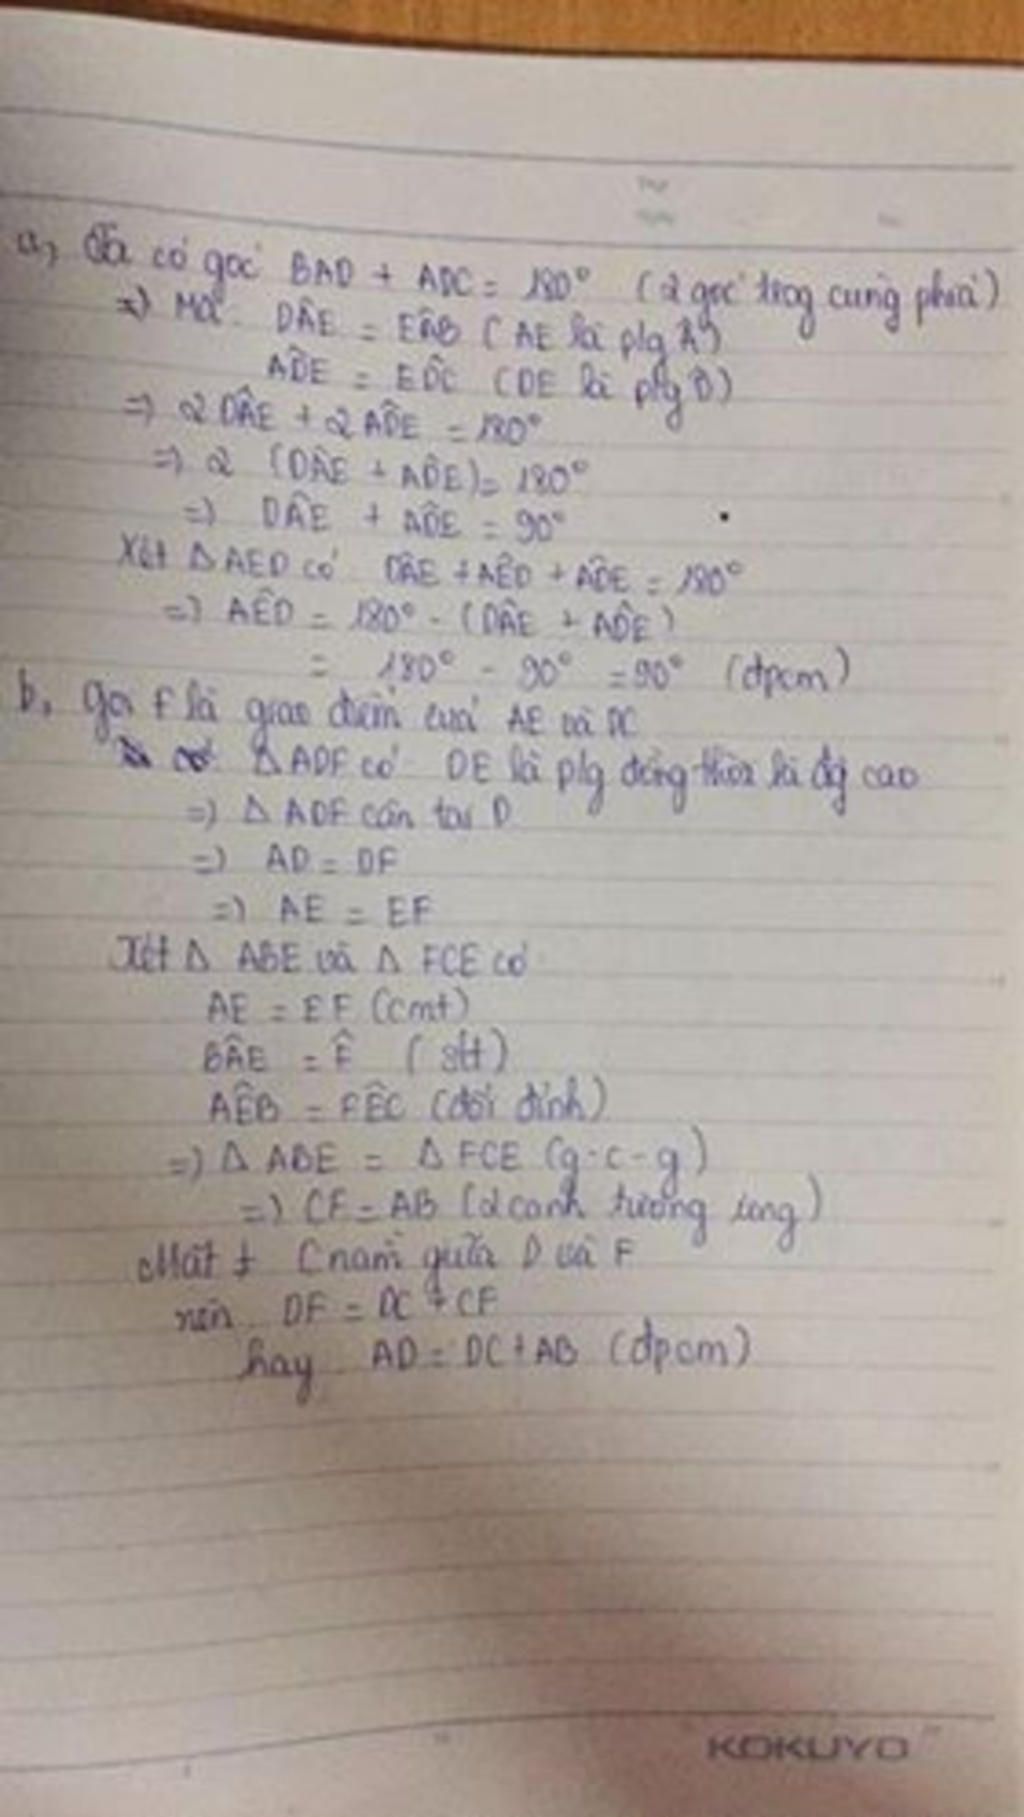 a, Ta có góc BAD + ADC = 180° (2 góc trog cùng phía)
=> Mà DÂE = EÂB (AE là p/g Â)
AD̂E = ED̂C (DE là p/g D̂)
=> 2 DÂE + 2 AD̂E = 180°
=> 2 (DÂE + AD̂E) = 180°
=> DÂE + AD̂E = 90°
Xét △ AED có DÂE + AÊD + AD̂E = 180°
=> AÊD = 180° - (DÂE + AD̂E)
= 180° - 90° = 90° (đpcm)
b, gọi F là giao điểm cuả AE và DC
△ ADF có DE là p/g đồng thời là đg cao
=> △ ADF cân tại D
=> AD = DF
=> AE = EF
Xét △ ABE và △ FCE có
AE = EF (cmt)
BÂE = F̂ (slt)
AÊB = FÊC (đối đỉnh)
=> △ ABE = △ FCE (g-c-g)
=> CF = AB (2 cạnh tương ứng)
Mặt ≠ C nằm giữa D và F
nên DF = DC + CF
hay AD = DC + AB (đpcm)
KOKUYO